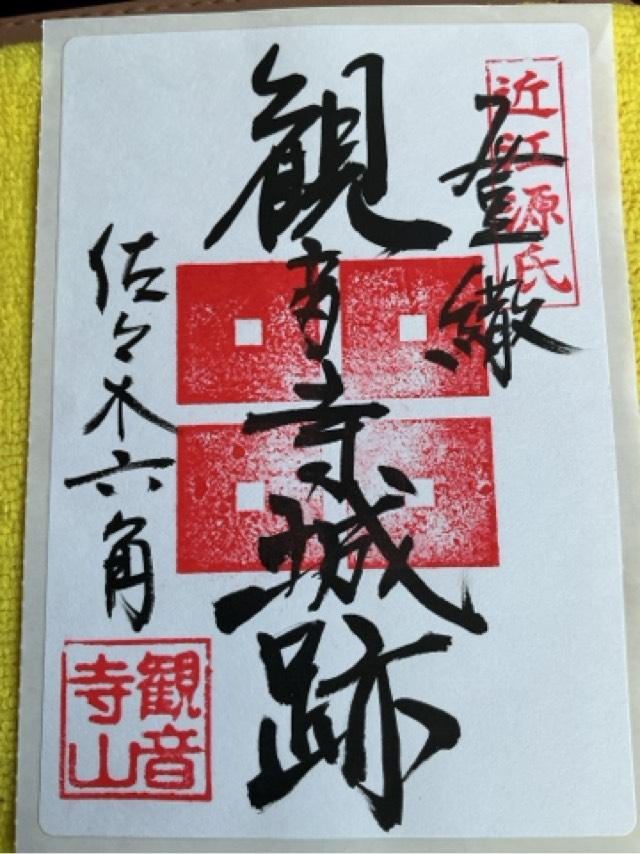 近江源氏
登繖
観音寺城跡
佐々木六角
観音
寺山